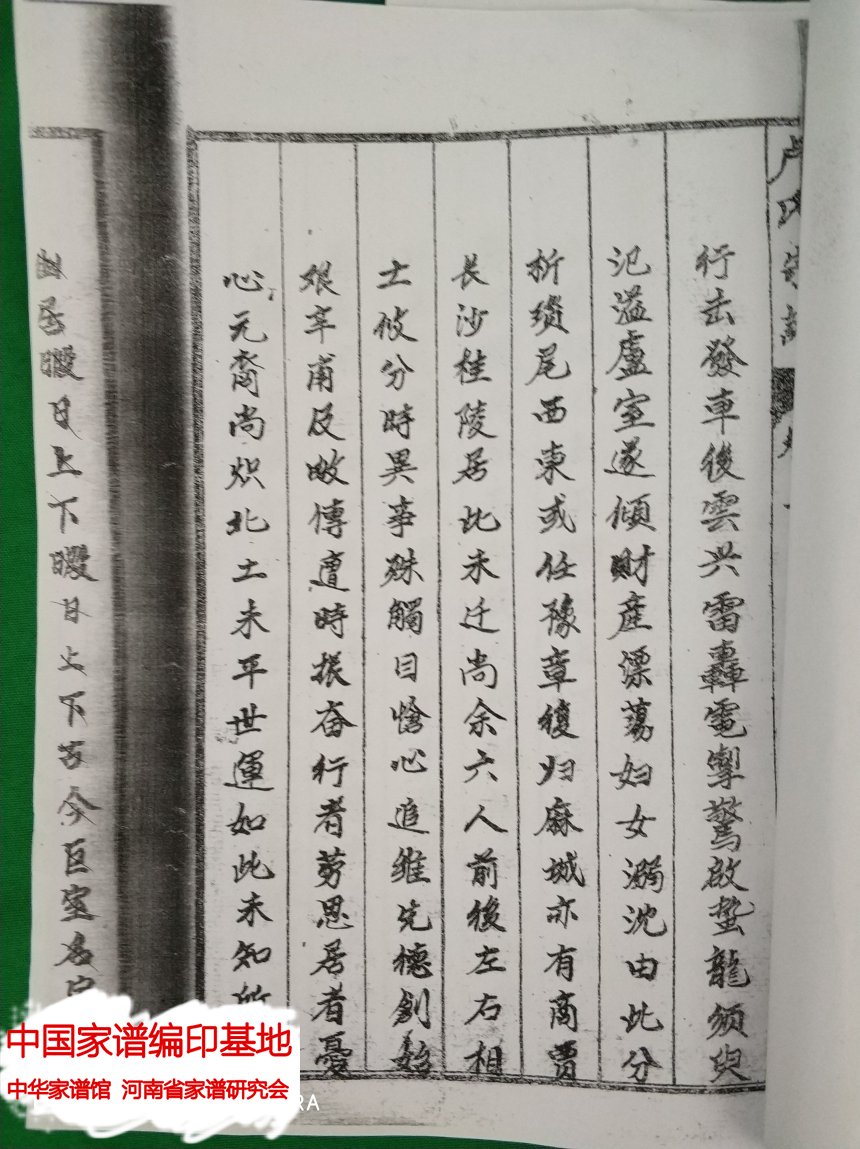 卢氏宗譜
行击發車後雲兴雷轟電掣驚啟蟄龍須臾
氾溢盧室遂傾財産漂蕩妇女溺沈由此分
析瑣尾西東或任豫章復归麻城亦有商賈
長沙桂陵居此未迁尚余六人前後左右相
士攸分時異事殊觸目愴心追維先德創始
艰辛甫及畝傳遭時振奋行者劳思居者憂
心元裔尚炽北土未平世運如此未知所
暇日上下暇日上下古今巨室名
中国家谱编印基地
中华家谱馆 河南省家谱研究会
RA